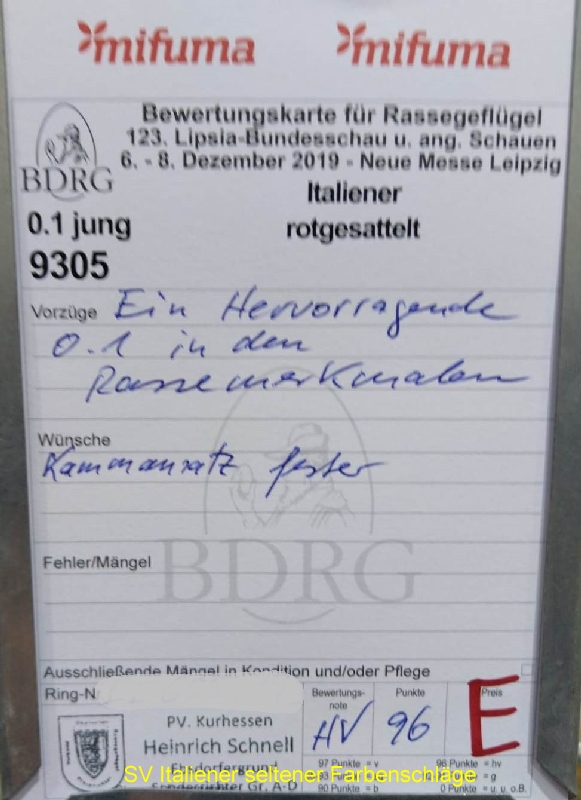 mifuma mifuma
Bewertungskarte für Rassegeflügel
123. Lipsia-Bundesschau u. ang. Schauen
6. - 8. Dezember 2019 - Neue Messe Leipzig
BDRG
Italiener
0.1 jung rotgesattelt
9305
Vorzüge Ein Hervorragende
0.1 in den
Rassemerkmalen
Wünsche
Kammansatz fester
BDRG
Fehler/Mängel
Ausschließende Mängel in Kondition und/oder Pflege
Ring-N
Bewertungs-
note
Punkte
Preis
HV 96 E
PV. Kurhessen
Heinrich Schnell
Ebsdorfergrund
Sonderrichter Gr. A-D
97 Punkte = v 96 Punkte = hv
= g
90 Punkte = b 0 Punkte = u, u, o.B.
SV Italiener seltener Farbenschläge